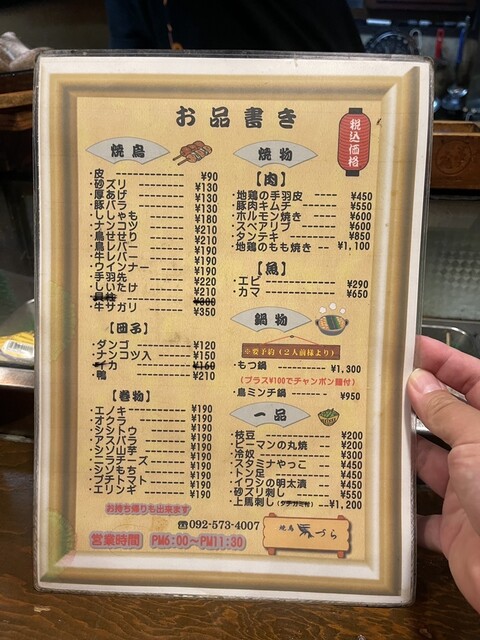 お品書き
税込価格
焼鳥
・皮 ¥90
・砂ズリ ¥130
・厚あげ ¥130
・豚バラ ¥130
・ししゃも ¥180
・ナンコツ ¥210
・鳥せせり ¥210
・鳥レバー ¥190
・牛レバー ¥190
・ウインナー ¥190
・手羽先 ¥220
・しいたけ ¥210
・貝柱 ¥300
・牛サガリ ¥350
【団子】
・ダンゴ ¥120
・ナンコツ入 ¥150
・イカ ¥160
・鴨 ¥210
【巻物】
・エノキ ¥190
・オクラ ¥190
・シシトウ ¥190
・アスパラ ¥190
・シソ山芋 ¥190
・シソチーズ ¥190
・シソもち ¥190
・プチトマト ¥190
・エリンギ ¥190
お持ち帰りも出来ます
焼物
【肉】
・地鶏の手羽皮 ¥450
・豚肉キムチ ¥550
・ホルモン焼き ¥600
・スペアリブ ¥600
・タンテキ ¥850
・地鶏のもも焼き ¥1,100
【魚】
・エビ ¥290
・カマ ¥650
鍋物
※要予約(2人前様より)
・もつ鍋 ¥1,300
(プラス¥100でチャンポン麺付)
・鳥ミンチ鍋 ¥950
一品
・枝豆 ¥200
・ピーマンの丸焼 ¥200
・冷奴 ¥300
・スタミナやっこ ¥450
・トン足 ¥450
・イワシの明太漬 ¥450
・砂ズリ刺し ¥550
・上馬刺し(タテガミ付) ¥1,200
☎092-573-4007
営業時間 PM6:00〜PM11:30
焼鳥
づら